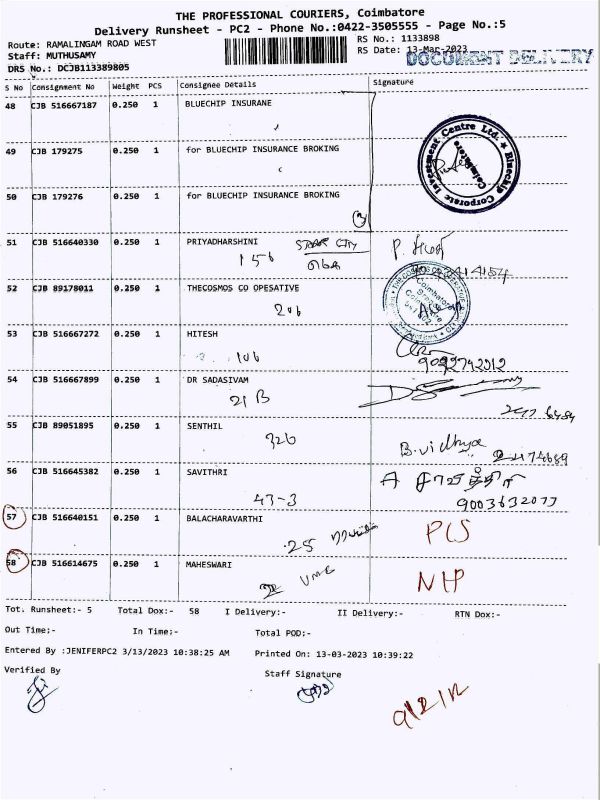 THE PROFESSIONAL COURIERS, Coimbatore
Delivery Runsheet - PC2 - Phone No.:0422-3505555 - Page No.:5
Route: RAMALINGAM ROAD WEST
RS No.: 1133898
Staff: MUTHUSAMY
RS Date: 13-Mar-2023
DOCUMENT DELIVERY
DRS No.: DCJB113389805
S No Consignment No Weight PCS Consignee Details Signature
48 CJB 516667187 0.250 1 BLUECHIP INSURANE
Bluechip Corporate Investment Centre Ltd.
Coimbatore
49 CJB 179275 0.250 1 for BLUECHIP INSURANCE BROKING
50 CJB 179276 0.250 1 for BLUECHIP INSURANCE BROKING
3
51 CJB 516640330 0.250 1 PRIYADHARSHINI
156
52 CJB 89178011 0.250 1 THECOSMOS CO OPESATIVE
206
Coimbatore
53 CJB 516667272 0.250 1 HITESH
106
54 CJB 516667899 0.250 1 DR SADASIVAM
21 B
55 CJB 89051895 0.250 1 SENTHIL
326 B. vidhya
56 CJB 516645382 0.250 1 SAVITHRI
43-3 சாவித்திரி
9003632077
57 CJB 516640151 0.250 1 BALACHARAVARTHI
25 PCS
58 CJB 516614675 0.250 1 MAHESWARI
Tot. Runsheet:- 5 Total Dox:- 58 I Delivery:- II Delivery:- RTN Dox:-
Out Time:- In Time:- Total POD:-
Entered By :JENIFERPC2 3/13/2023 10:38:25 AM Printed On: 13-03-2023 10:39:22
Verified By Staff Signature